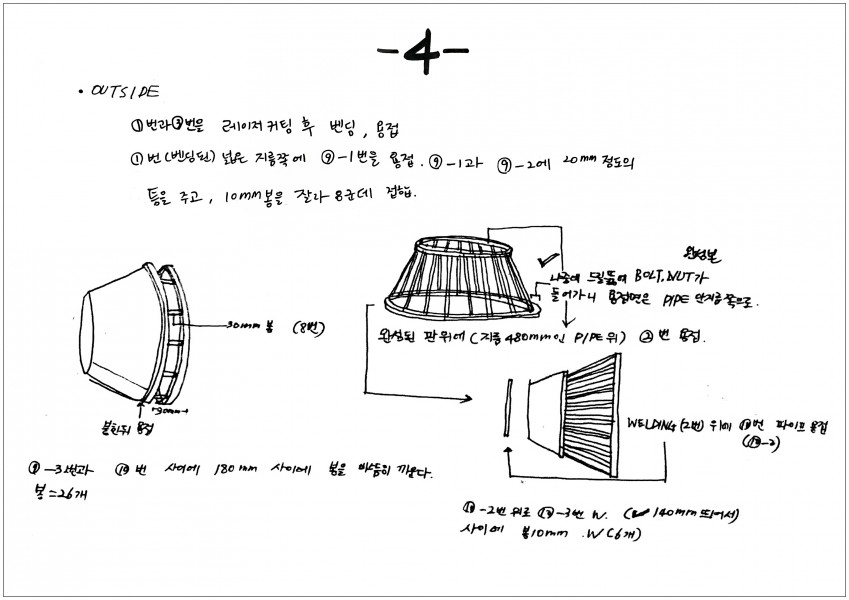 -4-
• OUTSIDE
①번과③번을 레이저커팅 후 벤딩, 용접
①번(벤딩된) 넓은 지름쪽에 ⑨-1번을 용접. ⑨-1과 ⑨-2에 20mm 정도의
틈을 주고, 10mm봉을 잘라 8군데 접합.
완성본
나중에 드릴뚫어 BOLT, NUT가
들어가니 용접면은 PIPE 안지름쪽으로.
30mm 봉 (8번)
완성된 판위에 (지름 480mm인 PIPE 위) ②번 용접.
90mm
용접
WELDING(2번) 위에 번 파이프 용접
⑨-3번과 ⑩번 사이에 180mm 사이에 봉을 끼운다.
봉=26개
-2번 위로 -3번 W. (140mm 띄어서)
사이에 봉10mm .W(6개)